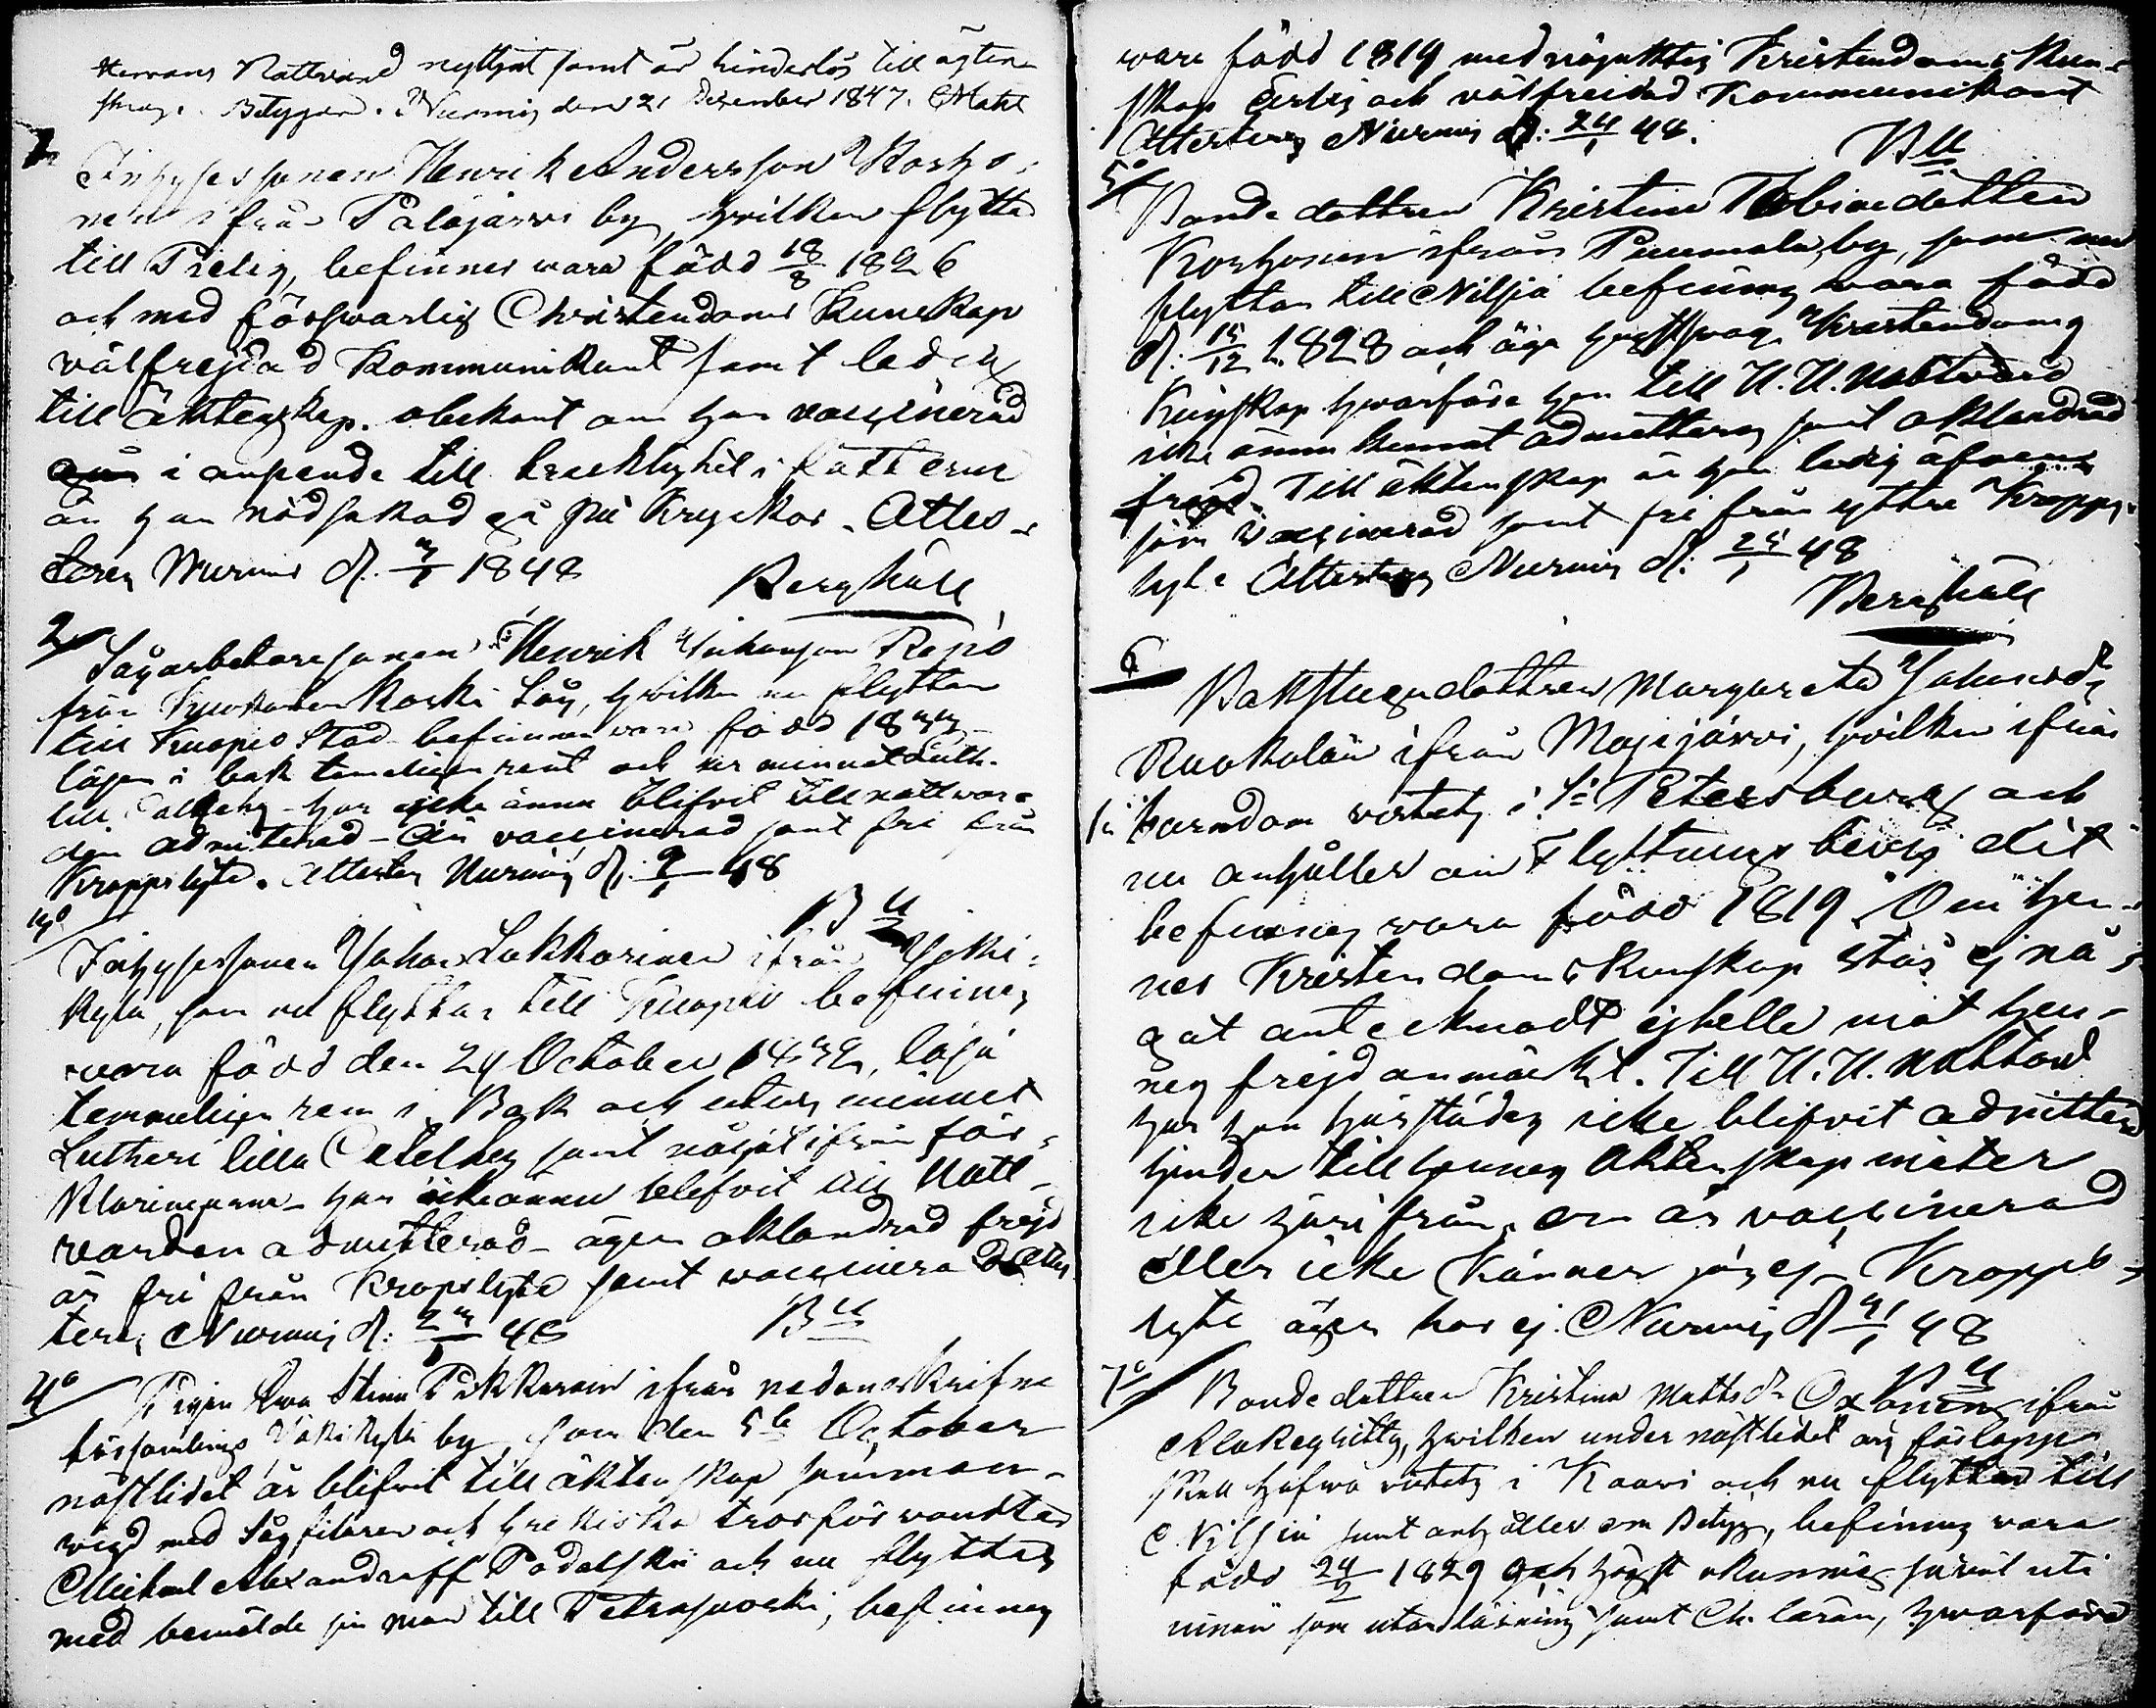 Herrans Nattvard nyttjat samt är hinderlös till äkten-
skap. Betygar. Nurmis den 21 Dezember 1847.
1
Inhysessonen Henrik Andersson Korho-
nen ifrån Palojärvi by, hvilken flyttar
till Pielis, befinnes vara född 18/8 1826
och med försvarlig Christendoms Kunskap
välfrejdad Kommunikant samt ledig
till äktenskap. obekant om han vaccinerad
i anseende till bräcklighet i fötterna
är han nödsakad gå på Kryckor. Attes-
teras Nurmis d. 1848
Berghäll
2
Sågarbetaresonen Henrik Johansson Repo
från Koski Såg, hvilken nu flyttar
till Kuopio Stad befinnes vara född
läser i bok temeligen rent och ur minnet Luth.
lilla Cathekes har icke ännu blifvit till nattvar-
den admitterad - Är vaccinerad samt fri från
Kroppslyte. Attesteras Nurmis d. 48
Bll
3o
Inhysessonen Johan Lukkarinen ifrån Joki-
kylä, som nu flyttar till Kuopio befinnes
vara född den 29 October, läsa
temmeligen ren i Bok och utur minnet
Lutheri lilla Catekes samt något ifrån för-
klaringarna - har icke ännu blifvit till Natt-
varden admitterad - äger oklandrad frejd
är fri från Kropslyte samt vaccinerad Attes-
teras Nurmis d. 48
Bll
4o
Pigan Ewa Stina Pekkarain ifrån nedanskrifne
församlings Jokikylä by, som den 5te October
nästlidet år blifvit till äktenskap samman-
vigd med Sågfilaren och Grekiska trosförvandten
Michael Alexandroff Podolskii och nu flyttar
med bemälde sin man till Petrosavoski, befinnes
vara född 1819 med nöjaktig Kristendoms Kun-
skap ärlig och välfrejdad Kommunikant
Attesteras Nurmis d: 24/1 48.
Bll
5o
Bonde dottren Kristina Tobiaedotter
Korhonen ifrån Puumala by, som nu
flyttar till Nilsiä befinnes vara född
d. 15/12 1828 och äga högst svag Kristendoms
Kunskap hvarföre hon till H. H. Nattvard
icke ännu kunnat admitteras samt oklandrad
frejd. Till äktenskap är hon ledig äfven
som vaccinerad samt fri från yttre Kropps-
lyte Attesteras Nurmis d: 25/1 48
Berghäll
6
Backstugudottren Margareta Johansdr
Ruokolain ifrån Mujejärvi, hvilken ifrån
sin barndom vistats i St Petersburg och
nu anhåller om Flyttnings bevis dit
befinnes vara född 1819. Om hen-
nes Kristendoms Kunskap står ej nå-
got antecknadt ejheller mot hen-
nes frejd anmärkt. Till H. H. Nattvard
har hon härstädes icke blifvit admitterad
hinder till hennes Äktenskap möter
icke härifrån, om är vaccinerad
eller icke känner jag ej. Kropps-
lyte ägen hor ej. Nurmis d 31/1 48
Bll
7o
Bonde dottren Kristina Mattsdr Oxanen ifrån
hvilken under nästlidet års förlopp
skall hafva vistats i Kaavi och nu flyttar till
Nilsiä samt anhåller om Betyg, befinnes vara
född 24/2 1829 och högst okunnig såväl uti
innan som utan läsning samt Ch. läran, hvarföre